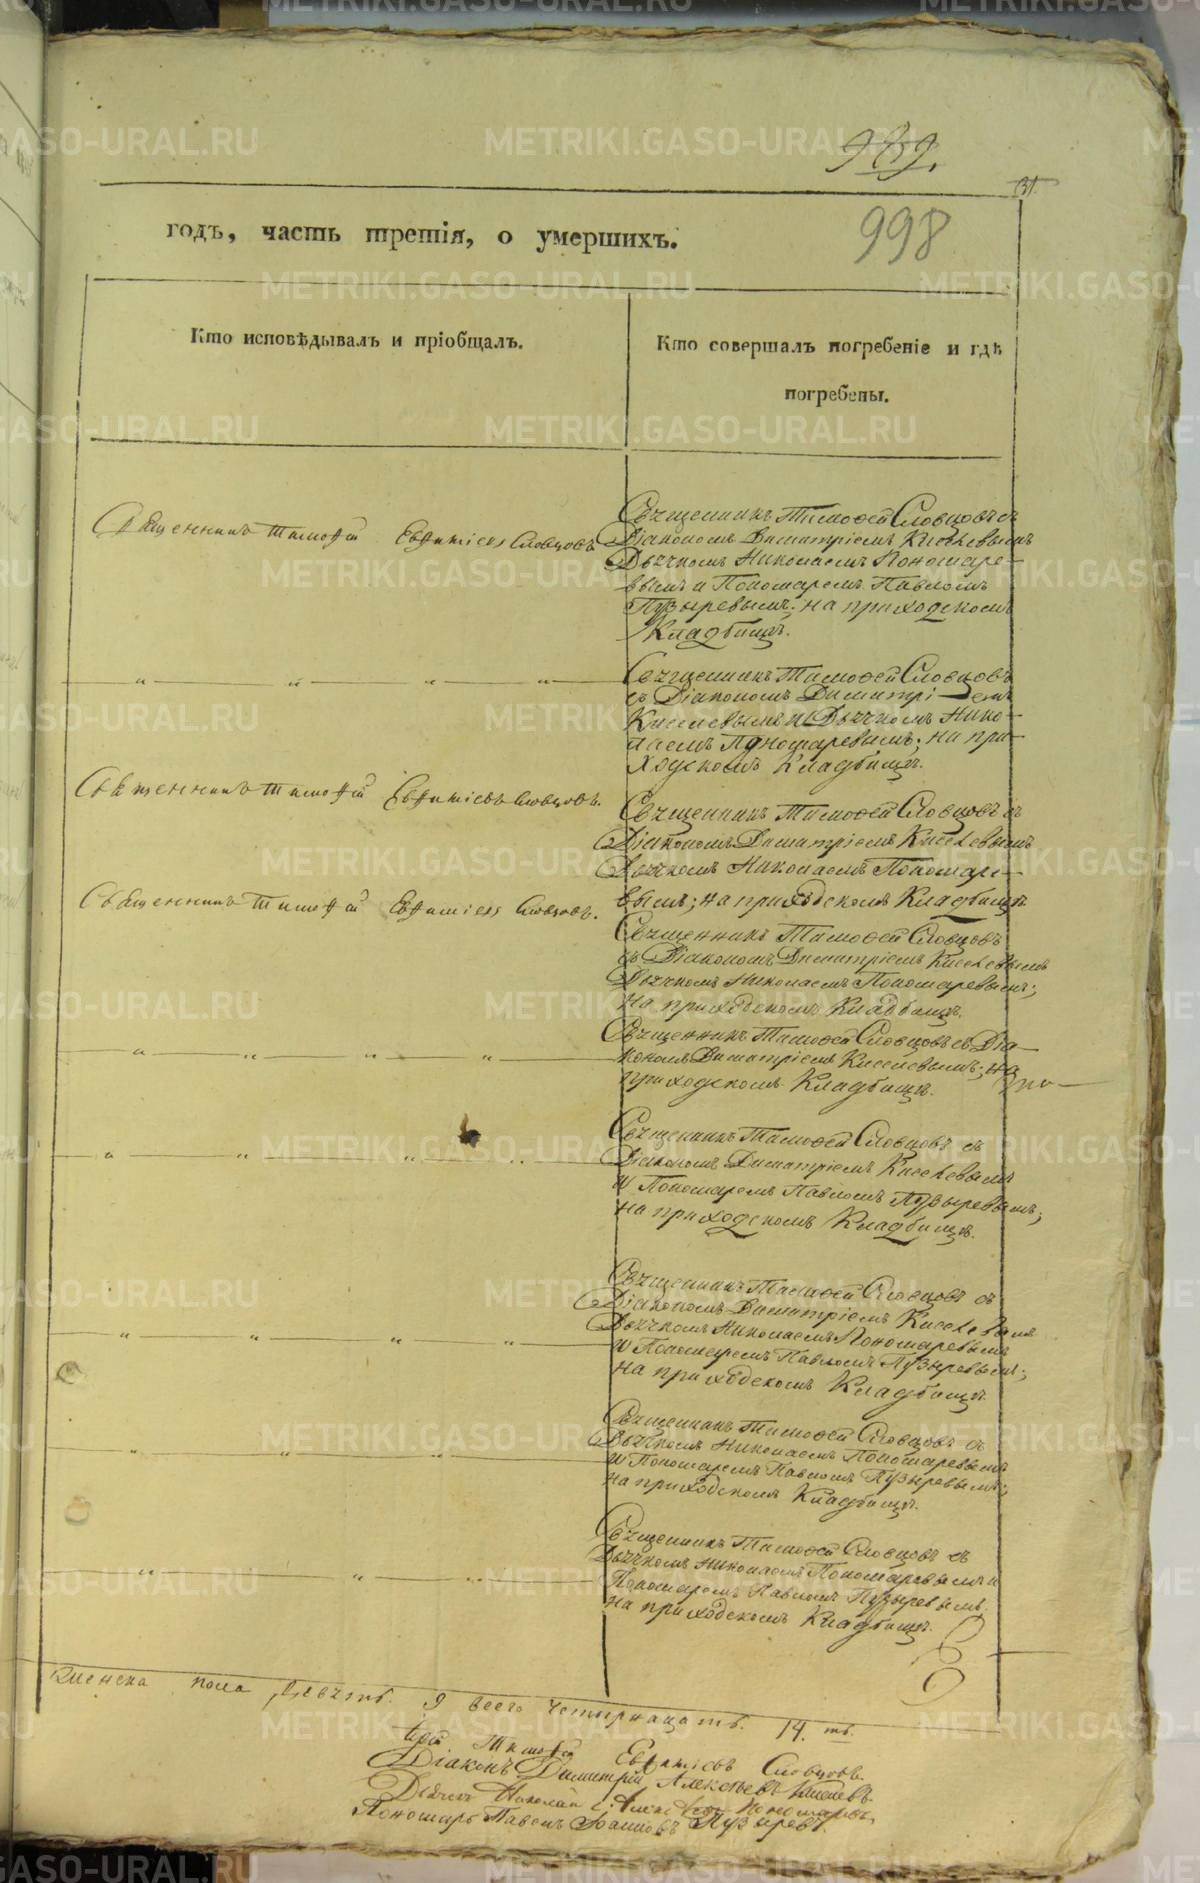 989.
31.
998
годъ, часть третія, о умершихъ.
Кто исповѣдывалъ и пріобщалъ.
Кто совершалъ погребеніе и гдѣ
погребены.
Священникъ Тимоѳей Евфиміевъ Словцовъ
Священникъ Тимофей Словцовъ съ
Діакономъ Димитріемъ Киселевымъ
Дьячкомъ Николаемъ Пономаре-
вымъ и Пономаремъ Павломъ
Пузыревымъ; на приходскомъ
Кладбищѣ.
" " " "
Священникъ Тимофей Словцовъ
съ Діакономъ Димитріемъ
Киселевымъ и Дьячкомъ Нико-
лаемъ Пономаревымъ; на при-
ходскомъ Кладбищѣ.
Священникъ Тимоѳей Евфиміевъ Словцовъ.
Священникъ Тимофей Словцовъ съ
Діакономъ Димитріемъ Киселевымъ
Дьячкомъ Николаемъ Пономаре-
вымъ; на приходскомъ Кладбищѣ.
Священникъ Тимоѳей Евфиміевъ Словцовъ.
Священникъ Тимофей Словцовъ
съ Діакономъ Димитріемъ Киселевымъ
Дьячкомъ Николаемъ Пономаревымъ;
на приходскомъ Кладбищѣ.
" " " "
Священникъ Тимофей Словцовъ съ Діа-
кономъ Димитріемъ Киселевымъ; на
приходскомъ Кладбищѣ.
" " " "
Священникъ Тимофей Словцовъ съ
Діакономъ Димитріемъ Киселевымъ
и Пономаремъ Павломъ Пузыревымъ;
на приходскомъ Кладбищѣ.
" " " "
Священникъ Тимофей Словцовъ съ
Діакономъ Димитріемъ Киселевымъ
Дьячкомъ Николаемъ Пономаревымъ
и Пономаремъ Павломъ Пузыревымъ;
на приходскомъ Кладбищѣ.
" " "
Священникъ Тимофей Словцовъ съ
Дьячкомъ Николаемъ Пономаревымъ
и Пономаремъ Павломъ Пузыревымъ;
на приходскомъ Кладбищѣ.
" " "
Священникъ Тимофей Словцовъ съ
Дьячкомъ Николаемъ Пономаревымъ и
Пономаремъ Павломъ Пузыревымъ.
на приходскомъ Кладбищѣ.
Женска пола девять. 9 всего четырнацать. 14. ть.
Іерей Тимоѳей Евфиміевъ Словцовъ.
Діаконъ Димитрій Алексѣевъ Киселевъ.
Дьячекъ Николай Пономаревъ,
Пономарь Павелъ Іоанновъ Пузыревъ.
METRIKI.GASO-URAL.RU